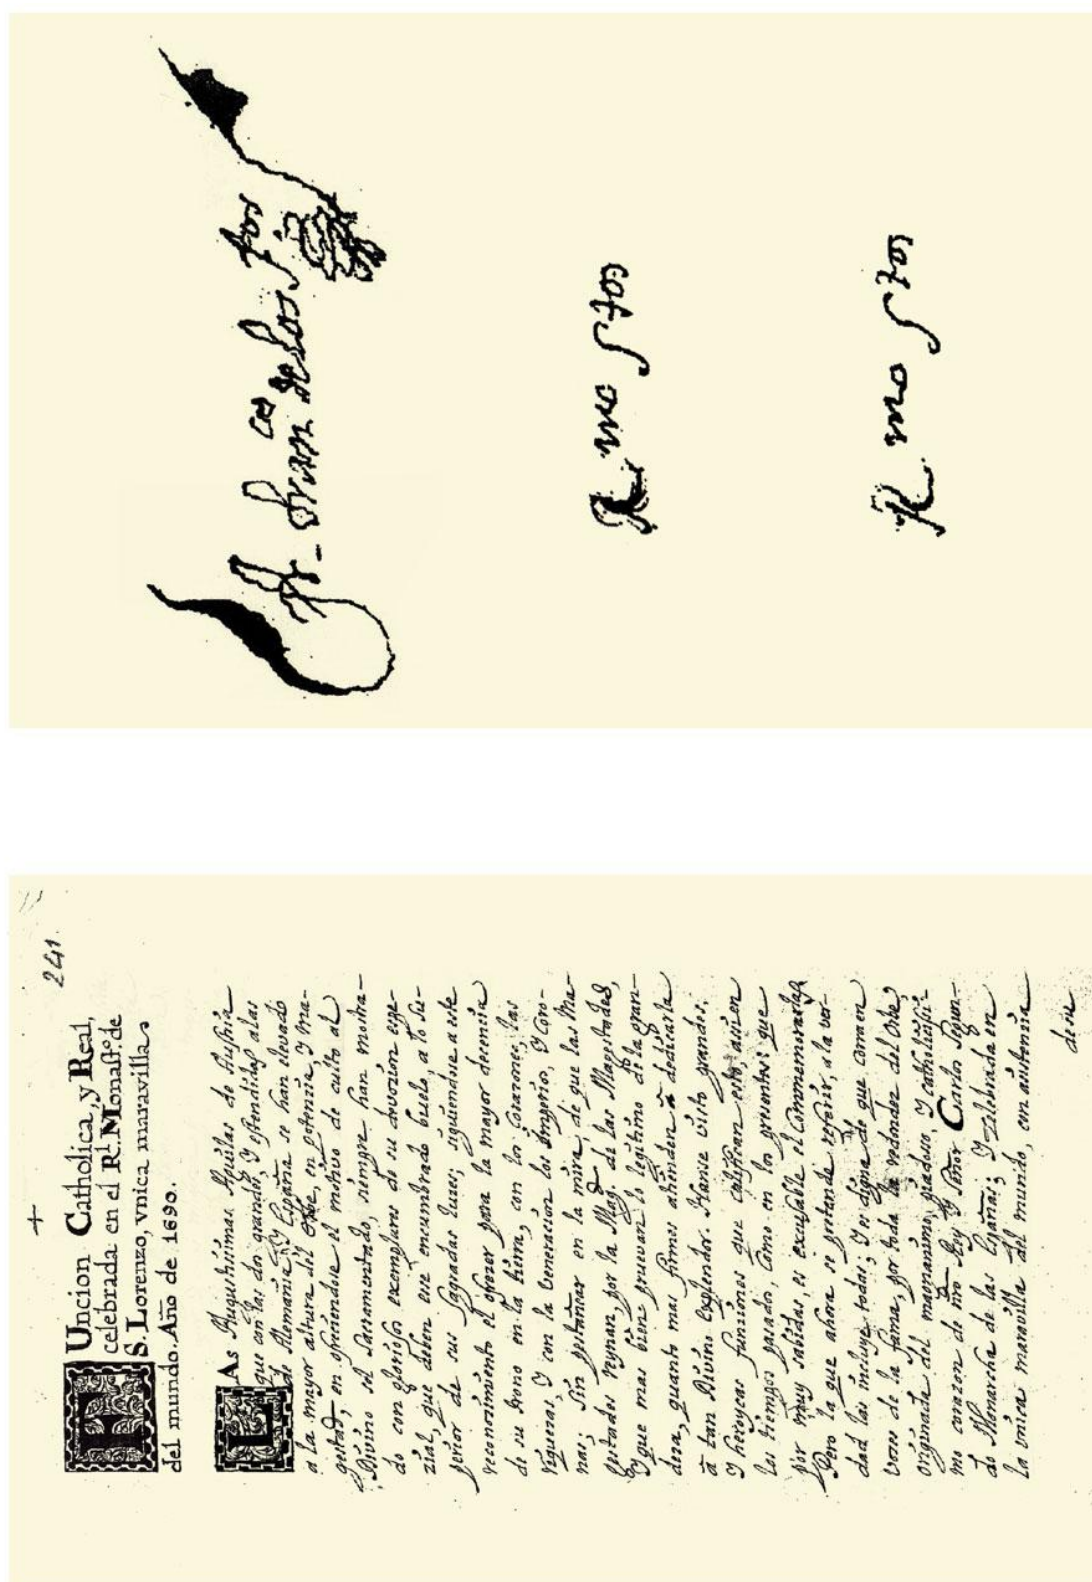 +
241
FUncion Catholica, y Real,
celebrada en el Rl. Monastº. de
S. Lorenzo, vnica maravilla
del mundo. Año de 1690.
LAs Augustissimas Aguilas de Austria
que con las dos grandes, y estendidas alas
de Alemania, y España se han elevado
a la mayor altura del Orbe, en potenzia, y Ma-
gestad, en ofreciendose el motivo de culto al
Divino sol Sacramentado, siempre han mostra-
do con gloriosos exemplares de su devozion ege-
zial, que deben ese encumbrado buelo, a lo Su-
perior de sus sagradas luzes; siguiendose a este
reconozimiento el ofrezer para la mayor decenzia
de su trono en la tierra, con los Corazones, las
riquezas, y con la veneracion los Imperios, y Coro-
nas; sin pestañear en la mira, de que las Ma-
gestades reynan, por la Magd. de las Magestades,
y que mas bien pruevan lo legitimo de la gran-
deza, quanto mas firmes atienden a dedicarla
a tan Divino Explendor. Hanse visto grandes,
y heroycas funziones que califican esto, assi en
los tiempos pasados, como en los presentes; que
por muy sabidas, es excusable el Conmemorarlas,
Pero la que ahora se pretende referir, a la ver-
dad las incluye todas; y es digna de que corra en
vozes de la fama, por toda la redondez del Orbe,
originada del magnanimo, piadoso, y catholicissi-
mo corazon de nro Rey y Señor Carlos Segun-
do Monarcha de las Españas; y zelebrada en
la vnica maravilla del mundo, con autoriza
de su
fr. Francco de los stos
R mo stos
R mo stos